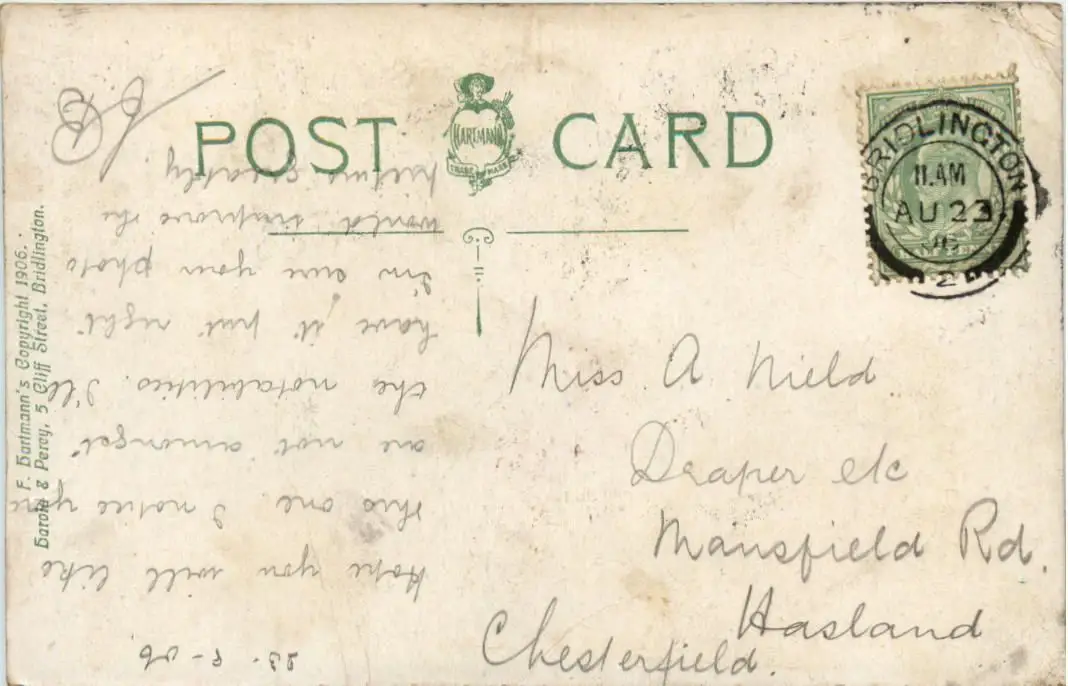 POST CARD
HARTMANN
TRADE MARK
BRIDLINGTON
11.AM
AU 23
06
2
F. Hartmann's Copyright 1906.
Harold & Percy, 5 Cliff Street, Bridlington.
Miss A Nield
Draper etc
Mansfield Rd.
Hasland
Chesterfield.
23-8-06
Hope you will like
this one I notice you
are not amongst
the notabilities. I'll
have it put right
I'm sure your photo
would improve the
picture greatly